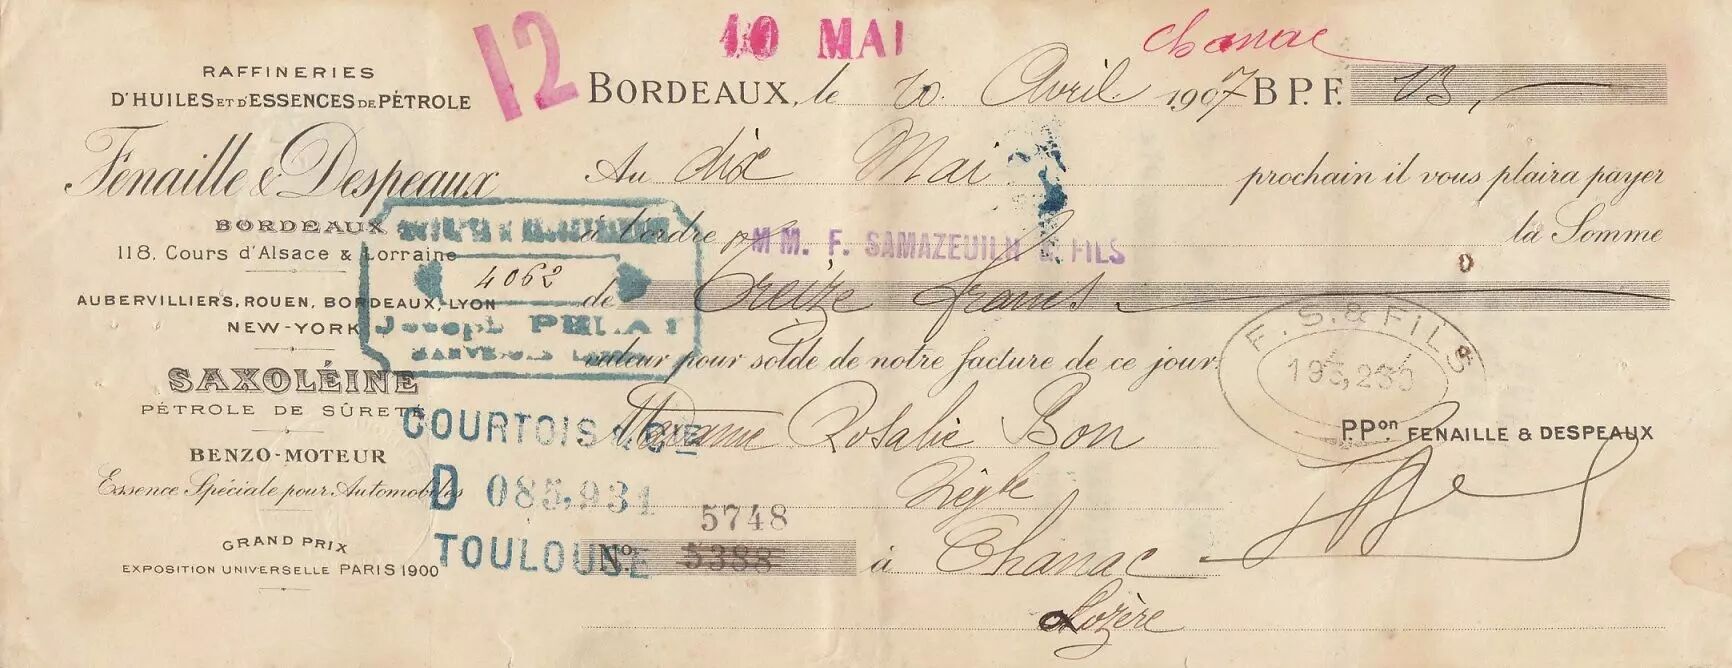 12
10 MAI
Chanac
RAFFINERIES
D'HUILES ET D'ESSENCES DE PÉTROLE
Fenaille & Despeaux
BORDEAUX
118, Cours d'Alsace & Lorraine
AUBERVILLIERS, ROUEN, BORDEAUX, LYON
NEW-YORK
SAXOLÉINE
PÉTROLE DE SÛRETÉ
BENZO-MOTEUR
Essence Spéciale pour Automobiles
GRAND PRIX
EXPOSITION UNIVERSELLE PARIS 1900
BORDEAUX, le 20 Avril 1907 B P. F. 13,
Au dix Mai prochain il vous plaira payer
à l'ordre MM. F. SAMAZEUILH & FILS la Somme
de Treize francs
valeur pour solde de notre facture de ce jour.
4062
Joseph
F. S. & FILS
PPon FENAILLE & DESPEAUX
Madame Rosalie Bon
COURTOIS & Cie
D 085,931
TOULOUSE
5748
No 5388 à Chanac
Lozère